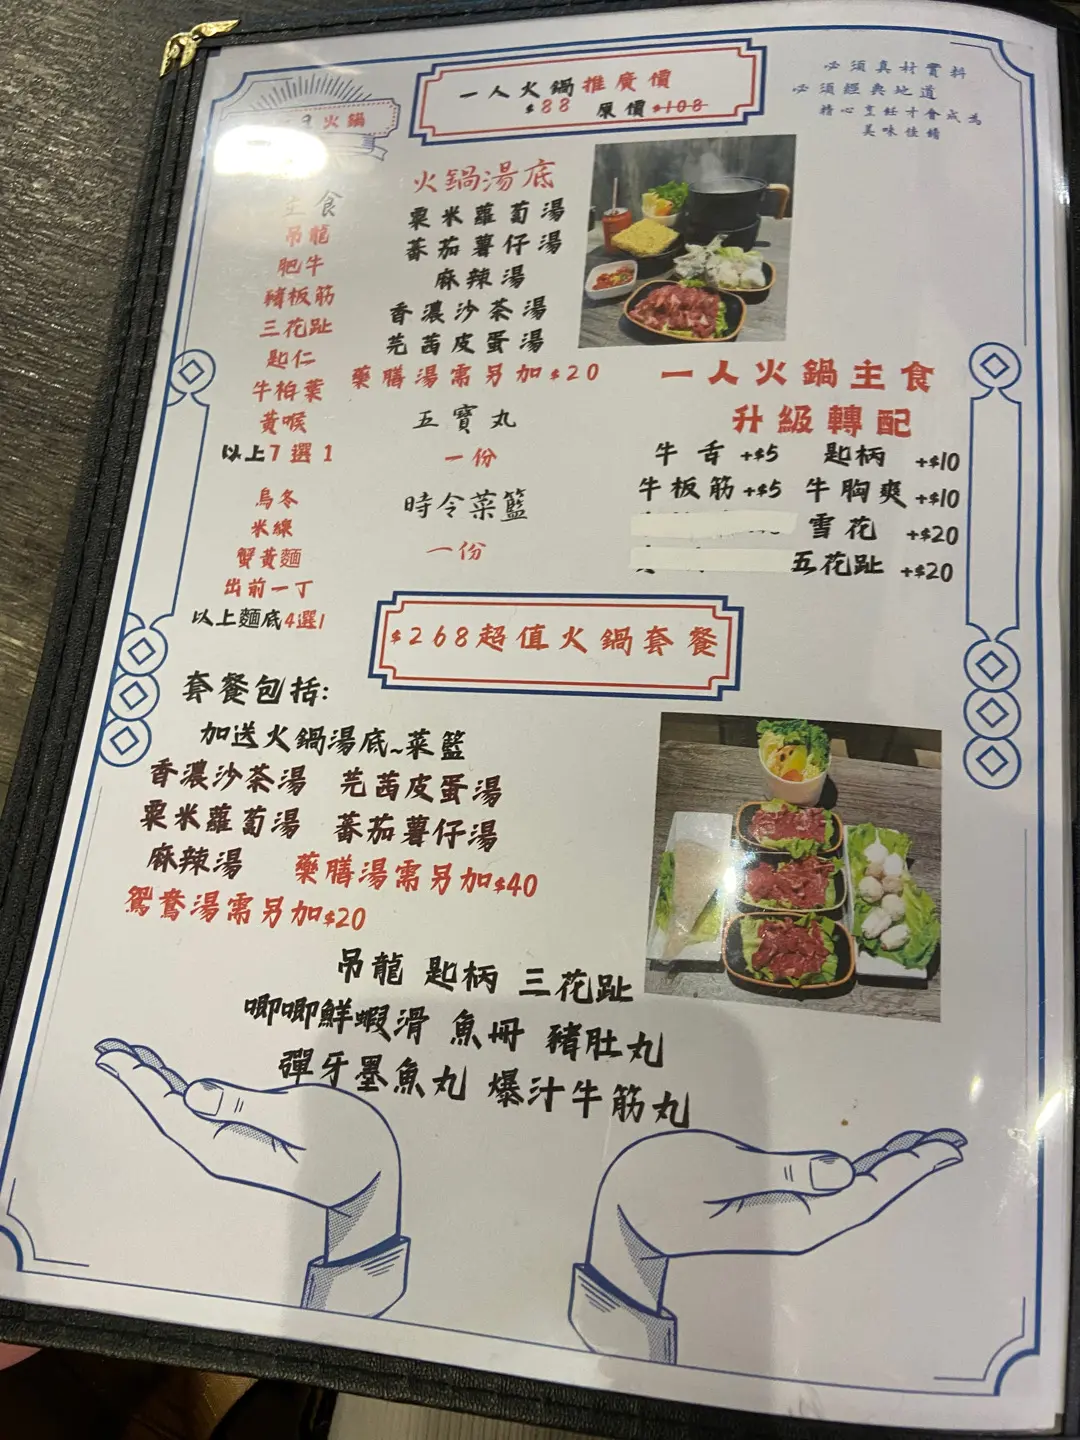 一人火鍋推廣價
$88 原價$108
必須真材實料
必須經典地道
精心烹飪才會成為
美味佳餚
火鍋
主食
吊龍
肥牛
豬板筋
三花趾
匙仁
牛柏葉
黃喉
以上7選1
烏冬
米線
蟹黃麵
出前一丁
以上麵底4選1
火鍋湯底
粟米蘿蔔湯
蕃茄薯仔湯
麻辣湯
香濃沙茶湯
芫茜皮蛋湯
藥膳湯需另加$20
五寶丸
一份
時令菜籃
一份
一人火鍋主食
升級轉配
牛舌+$5 匙柄+$10
牛板筋+$5 牛胸爽+$10
雪花+$20
五花趾+$20
$268超值火鍋套餐
套餐包括:
加送火鍋湯底~菜籃
香濃沙茶湯 芫茜皮蛋湯
粟米蘿蔔湯 蕃茄薯仔湯
麻辣湯 藥膳湯需另加$40
鴛鴦湯需另加$20
吊龍 匙柄 三花趾
唧唧鮮蝦滑 魚冊 豬肚丸
彈牙墨魚丸 爆汁牛筋丸